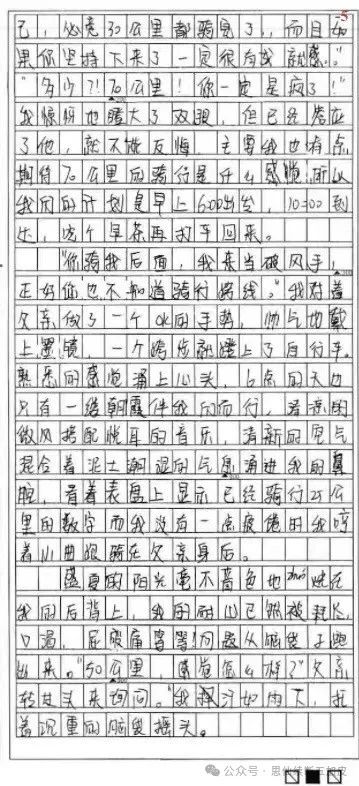 -5
己，必竟30公里都骑完了，而且如
果你坚持下来了一定很有成就感。”
“多少？！70公里！你一定是疯了！”
我惊讶地瞪大了双眼，但已经答应
了他，就不能反悔，主要我也有点
期待70公里的骑行是什么感觉！所以
我们的计划是早上6:00出发，10:00到
达，吃个早茶再打车回来。
“你骑我后面，我来当破风手，
正好你也不知道骑行路线。”我对着
父亲做了一个OK的手势，帅气地戴
上墨镜，一个跨步就蹬上了自行车。
熟悉的感觉涌上心头，6点的天边
只有一缕朝霞伴我们而行，清凉的
微风搭配悦耳的音乐，清新的空气
混合着泥土潮湿的气息涌进我的鼻
腔，看着表盘上显示已经骑行25公
里的数字而我没有一点疲倦的我哼
着小曲跟骑在父亲身后。
盛夏的阳光毫不吝色地zhuó烧在
我的后背上，我的耐心已然被耗尽，
口渴，屁股痛等等问题从脑袋子跑
出来。“50公里，感觉怎么样？”父亲
转过头来询问。“我挥汗如雨下，托
着沉重的脑袋摇头。
公众号·思他续断五加皮